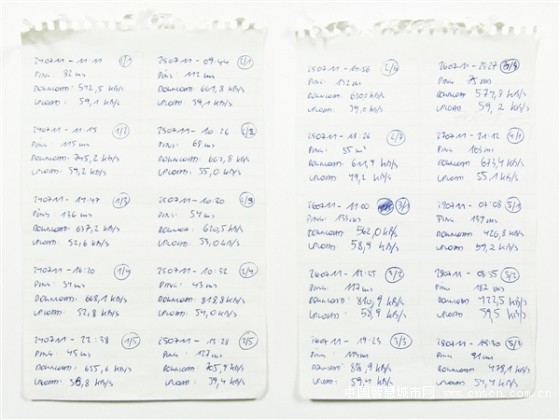 240711 - 11:11 1/1
PING: 82 ms
DOWNLOAD: 592,5 kB/s
UPLOAD: 59,1 kB/s
240711 - 11:15 1/2
PING: 115 ms
DOWNLOAD: 705,2 kB/s
UPLOAD: 59,2 kB/s
240711 - 11:47 1/3
PING: 136 ms
DOWNLOAD: 677,2 kB/s
UPLOAD: 52,6 kB/s
240711 - 16:20 1/4
PING: 51 ms
DOWNLOAD: 668,1 kB/s
UPLOAD: 57,8 kB/s
240711 - 22:38 1/5
PING: 45 ms
DOWNLOAD: 655,6 kB/s
UPLOAD: 58,8 kB/s
250711 - 09:44 2/1
PING: 112 ms
DOWNLOAD: 661,8 kB/s
UPLOAD: 59,1 kB/s
250711 - 10:26 2/2
PING: 68 ms
DOWNLOAD: 667,8 kB/s
UPLOAD: 55,0 kB/s
250711 - 10:30
PING: 54 ms
DOWNLOAD: 610,5 kB/s
UPLOAD: 53,0 kB/s
250711 - 10:52 2/4
PING: 43 ms
DOWNLOAD: 818,8 kB/s
UPLOAD: 54,0 kB/s
250711 - 13:28 2/5
PING: 127 ms
DOWNLOAD: 705,9 kB/s
UPLOAD: 39,4 kB/s
250711 - 2/6
PING: 132 ms
DOWNLOAD: 680,2 kB/s
UPLOAD: 59,0 kB/s
250711 - 18:26 2/7
PING: 55 ms
DOWNLOAD: 611,9 kB/s
UPLOAD: 49,2 kB/s
260711 - 11:00 3/1
PING: 133 ms
DOWNLOAD: 562,0 kB/s
UPLOAD: 58,9 kB/s
260711 - 13:25 3/2
PING: 117 ms
DOWNLOAD: 810,9 kB/s
UPLOAD: 58,9 kB/s
260711 - 19:23 3/3
PING: ms
DOWNLOAD: 818,9 kB/s
UPLOAD: 59,4 kB/s
260711 - 21:27
PING: 75 ms
DOWNLOAD: 577,8 kB/s
UPLOAD: 59,2 kB/s
270711 - 21:12 4/1
PING: 103 ms
DOWNLOAD: 673,4 kB/s
UPLOAD: 55,1 kB/s
280711 - 07:08 5/1
PING: 137 ms
DOWNLOAD: 426,8 kB/s
UPLOAD: 57,2 kB/s
280711 - 08:55 5/2
PING: 182 ms
DOWNLOAD: 722,5 kB/s
UPLOAD: 59,5 kB/s
280711 -
PING: 91 ms
DOWNLOAD: 478,1 kB/s
UPLOAD: 54,4 kB/s
中国智慧城市网
www.cnscn.com.cn